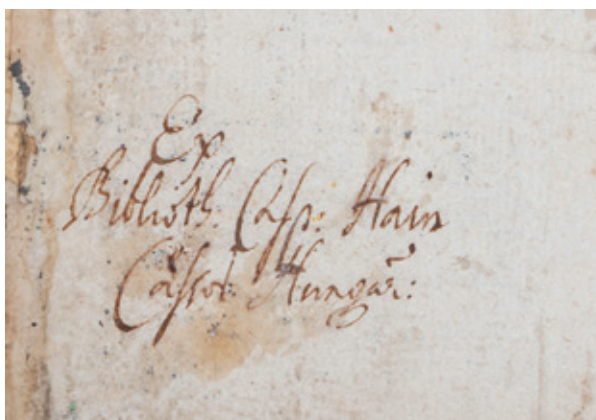 Ex
Biblioth: Casp: Hain
Cassov: Hungar: